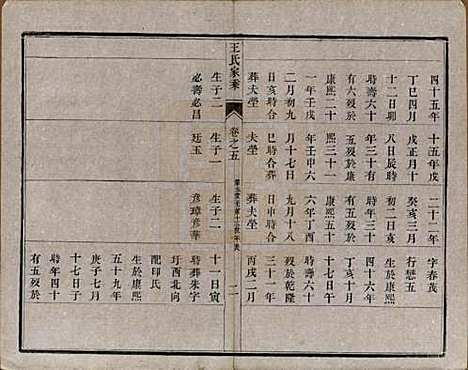 四十五年
丁巳四月
十二日卯
時壽六十
有六歿於
康熙二十
一年壬戌
二月初九
日亥時合
葬夫塋
十五年戊
戌正月十
八日辰時
年三十有
五歿於康
熙三十一
年壬申六
月十七日
巳時合葬
夫塋
二十二年
癸亥三月
初二日亥
時年三十
有五歿於
康熙五十
六年丁酉
九月十八
日申時合
葬夫塋
字春茂
行懋五
生於康熙
四十六年
丁亥十月
十七日午
時壽六十
歿於乾隆
三十一年
丙戌二月
王氏家乘
卷之五
二
生子二
必壽必昌
生子一
廷玉
生子二
彥璋彥華
十一日寅
時葬朱字
圩西北向
配印氏
生於康熙
五十九年
庚子七月
十七日子
時年四十
有五歿於